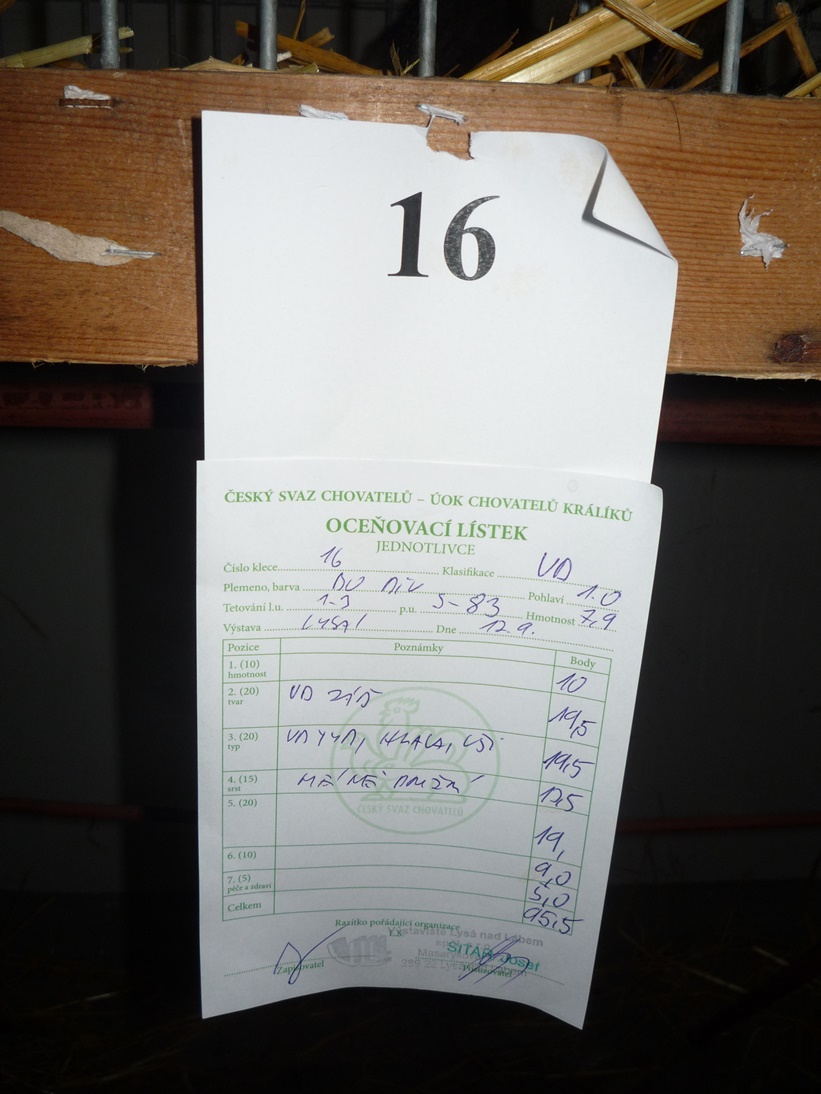 16
ČESKÝ SVAZ CHOVATELŮ – ÚOK CHOVATELŮ KRÁLÍKŮ
OCEŇOVACÍ LÍSTEK
JEDNOTLIVCE
Číslo klece 16 Klasifikace VD
Plemeno, barva Pohlaví 1.0
Tetování l.u. 1-3 p.u. 5-83 Hmotnost 7,9
Výstava LYSÁ Dne 12.9.
Pozice Poznámky Body
1. (10) hmotnost 10
2. (20) tvar VD 19,5
3. (20) typ HLAVA, UŠI 19,5
4. (15) srst MÉNĚ 13,5
5. (20) 19,
6. (10) 9,0
7. (5) péče a zdraví 5,0
Celkem 95,5
ČESKÝ SVAZ CHOVATELŮ
Razítko pořádající organizace
Výstaviště Lysá nad Labem
SITAŘ Josef
Zapisovatel Posuzovatel